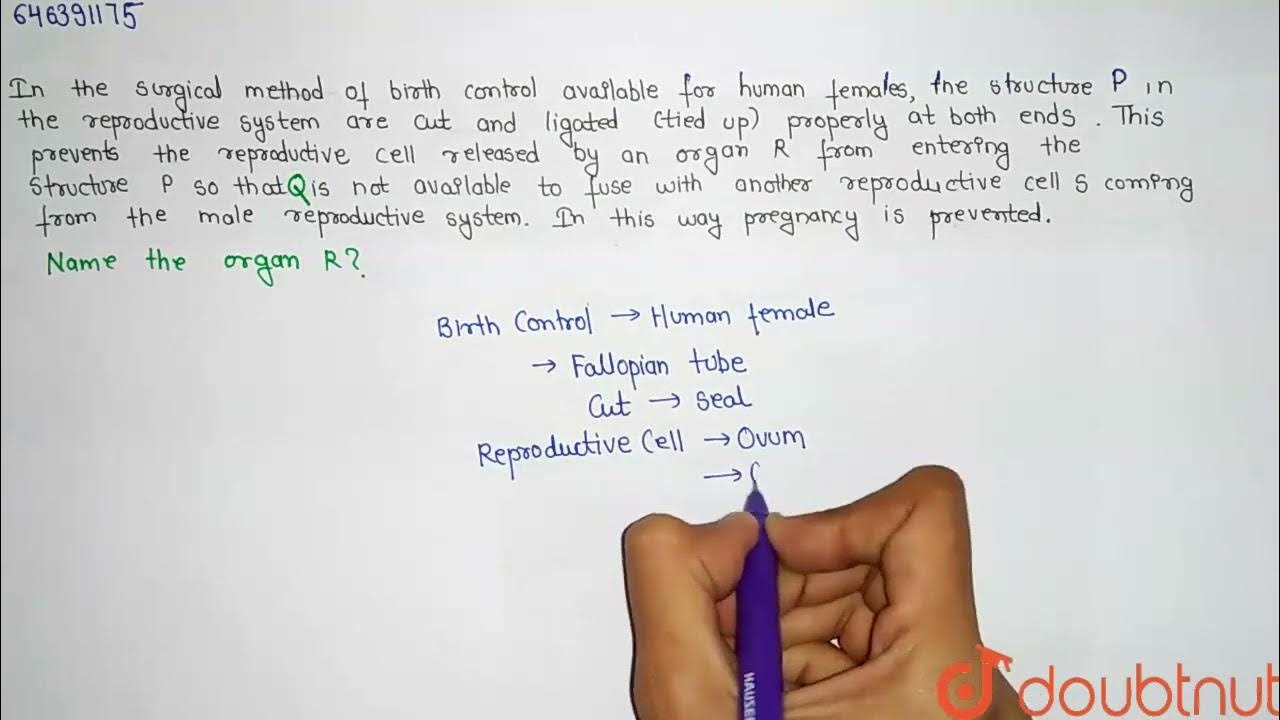 646391175
In the surgical method of birth control available for human females, the structure P in
the reproductive system are cut and ligated (tied up) properly at both ends. This
prevents the reproductive cell released by an organ R from entering the
structure P so that Q is not available to fuse with another reproductive cell S coming
from the male reproductive system. In this way pregnancy is prevented.
Name the organ R?
Birth Control → Human female
→ Fallopian tube
Cut → seal
Reproductive Cell → Ovum
→
HAUSER
doubtnut